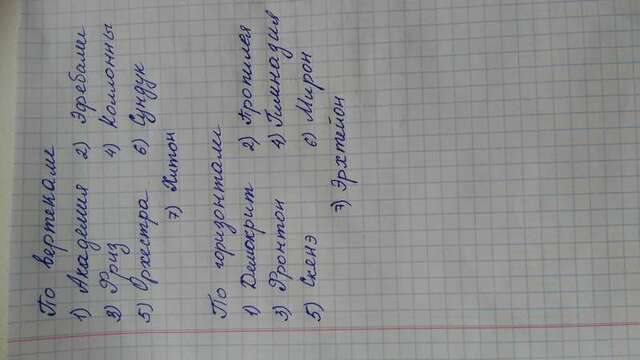 По вертекали
1) Академия 2) Эфебами
3) Фриз 4) Коллонны
5) Орхестра 6) Сундук
7) Хитон
По горизонтали
1) Демокрит 2) Пропилея
3) Фронтон 4) Гимназия
5) Скенэ 6) Мирон
7) Эрхтейон